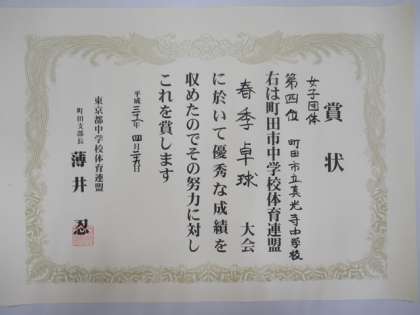 賞状
女子団体
第四位 町田市立真光寺中学校
右は町田市中学校体育連盟
春季卓球 大会
に於いて優秀な成績を
収めたのでその努力に対し
これを賞します
平成 年四月 日
東京都中学校体育連盟
町田支部長 薄井 忍